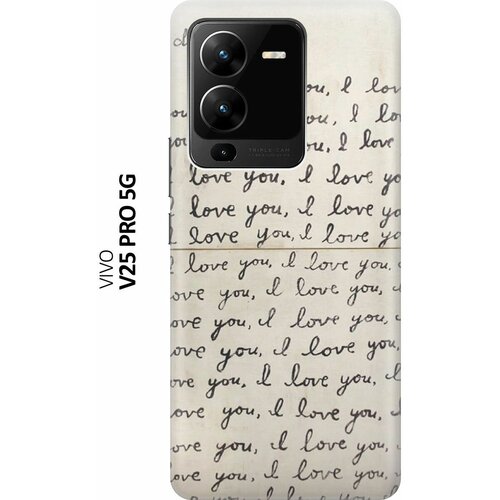 VIVO
V25 PRO 5G
TRIPLE CAM
ou, I lov
ou, I lo
ou, I love
love you, I love yo
love you, I love yo
I love you, I love yo
I love you, I love you,
ove you, I love you
ove you, I love you,
ove you, I love you,
ove you, I love you, I
ove you, I love you, I
ove you, I love you, I
love you, I love you,